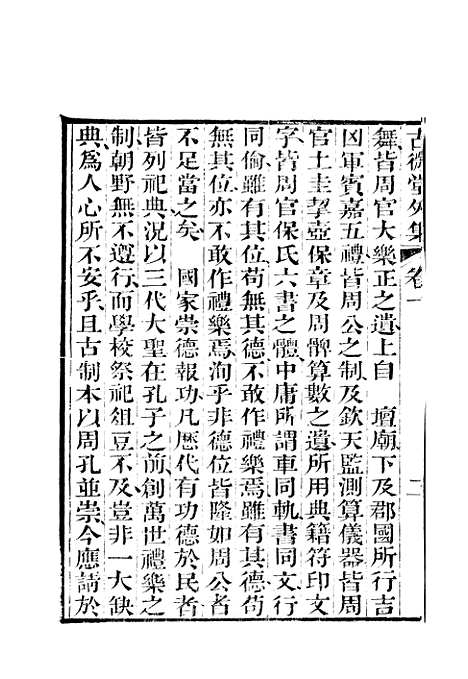 古微堂外集 卷一 二
舞皆周官大樂正之遺上自 壇廟下及郡國所行吉
凶軍賓嘉五禮皆周公之制及欽天監測算儀器皆周
官土圭挈壺保章及周髀算數之遺所用典籍符印文
字皆周官保氏六書之體中庸所謂車同軌書同文行
同倫雖有其位苟無其德不敢作禮樂焉雖有其德苟
無其位亦不敢作禮樂焉洵乎非德位皆隆如周公者
不足當之矣 國家崇德報功凡歷代有功德於民者
皆列祀典況以三代大聖在孔子之前創萬世禮樂之
制朝野無不遵行而學校祭祀俎豆不及豈非一大缺
典為人心所不安乎且古制本以周孔並崇今應請於